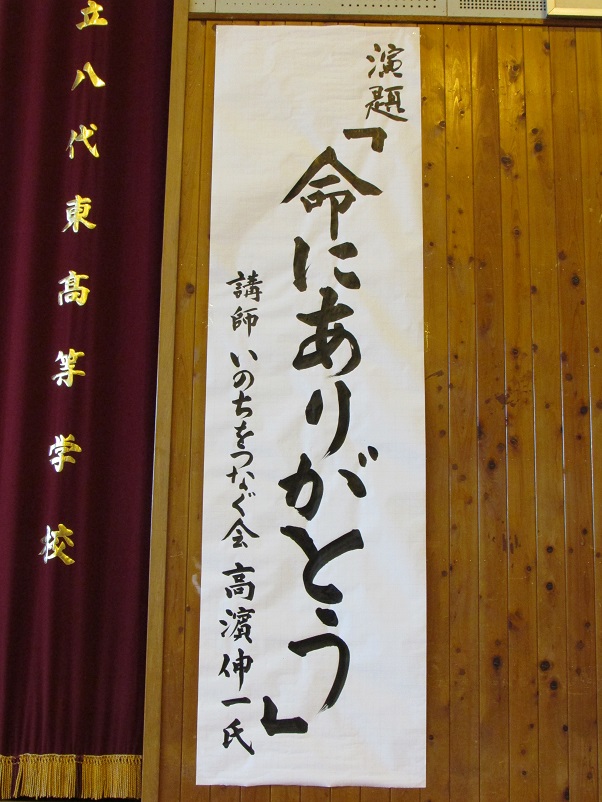 演題
「命にありがとう」
講師 いのちをつなぐ会 高濵伸一氏
立八代東高等学校